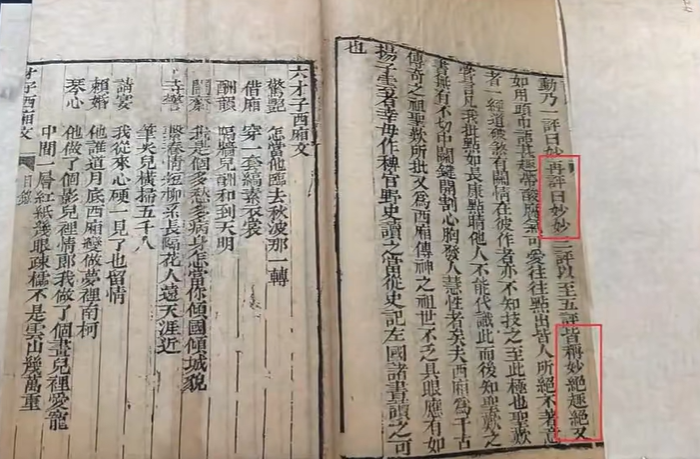 動乃一評曰妙再評曰妙妙三評以至五評皆稱妙絕趣絕又
如用頭巾語甚趣帶酸腐氣可愛往往點出皆人所絕不著意
者一經道破煞有關情在彼作者亦不知技之至此極也聖歎
嘗言凡我批點如長康點睛他人不能代識此而後知聖歎之
書無有不切中關鍵開豁心胸發人慧性者矣夫西廂為千古
傳奇之祖聖歎所批又為西廂傳神之祖世不乏具眼應有如
揚子雲者幸毋作稗官野史讀之當從史記左國諸書讀之可
也
六才子西廂文
驚艷 怎當他臨去秋波那一轉
借廂 穿一套縞素衣裳
酬韻 隔牆兒酬和到天明
鬧齋 我是個多愁多病身怎當你傾國傾城貌
寺警 繫春情短柳絲長隔花人遠天涯近
筆尖兒橫掃五千人
請宴 我從來心硬一見了也留情
賴婚 他誰道月底西廂變做夢裡南柯
琴心 他做了個影兒裡情郎我做了個畫兒裡愛寵
中間一層紅紙幾眼疎櫺不是雲山幾萬重
才子西廂文 目錄